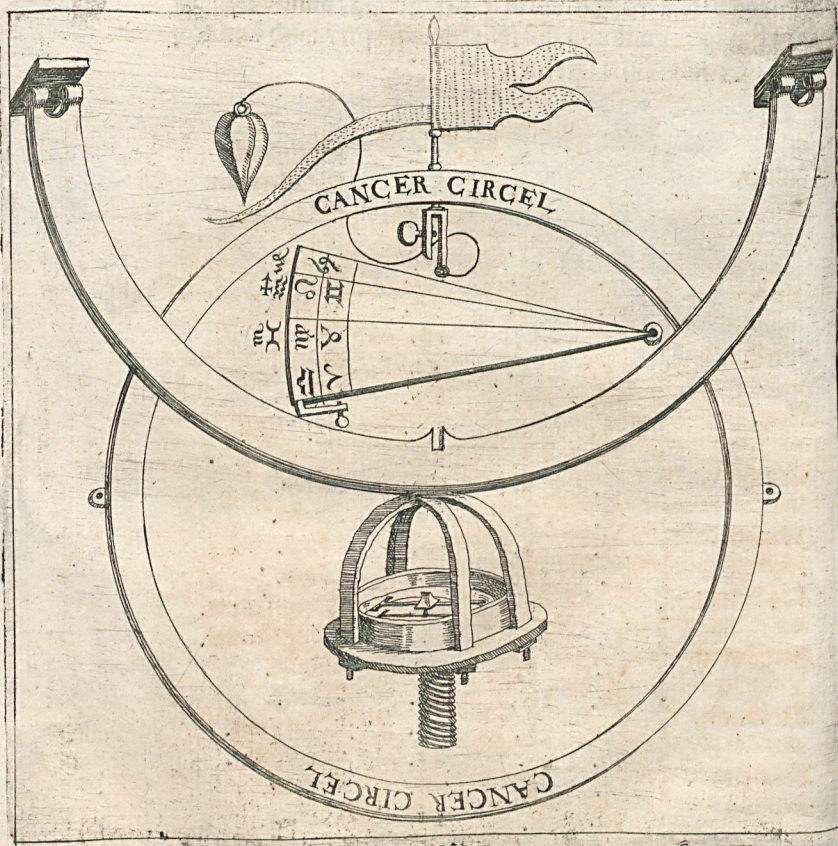 CANCER CIRCEL
CANCER CIRCEL